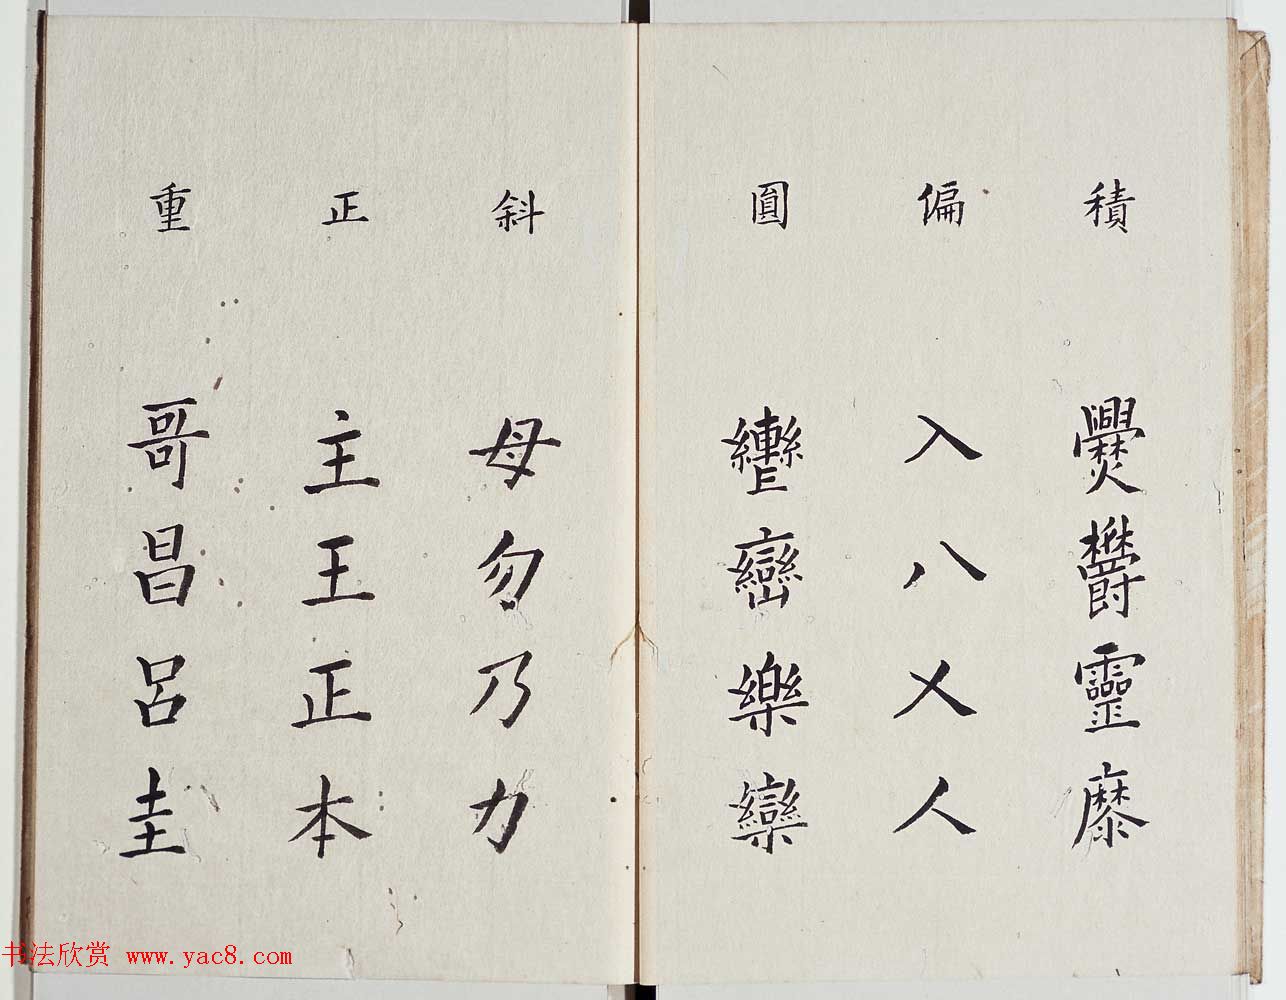 積 爨鬱靈
偏 入八乂人
圓 轡巒樂欒
斜 母勿乃力
正 主王正本
重 哥昌呂圭
书法欣赏 www.yac8.com